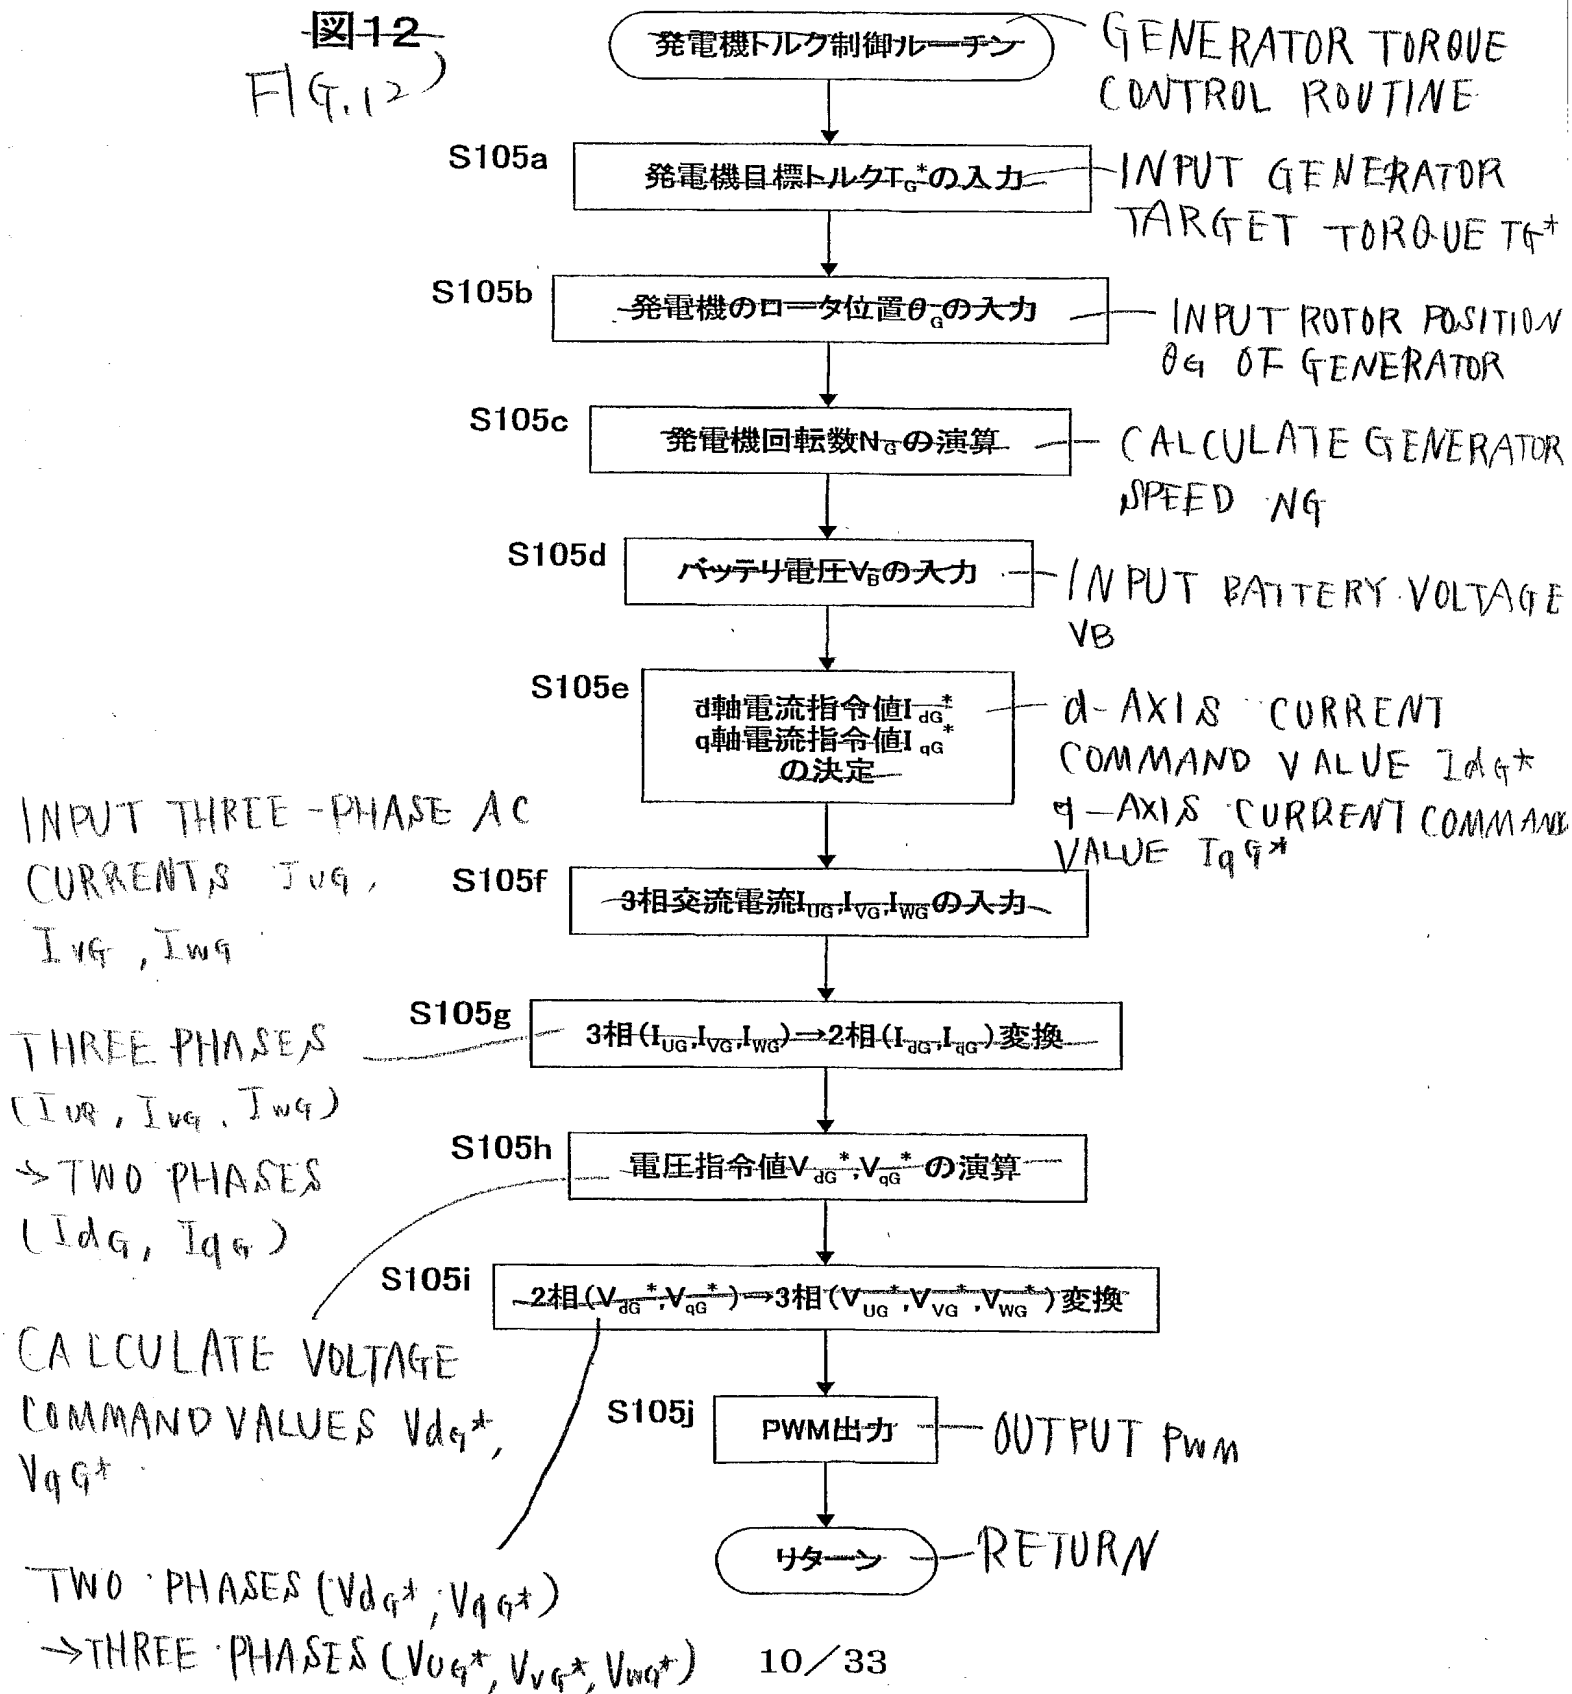 図12
FIG.12
発電機トルク制御ルーチン
GENERATOR TORQUE
CONTROL ROUTINE
S105a
発電機目標トルクTG*の入力
INPUT GENERATOR
TARGET TORQUE TG*
S105b
発電機のロータ位置θGの入力
INPUT ROTOR POSITION
θG OF GENERATOR
S105c
発電機回転数NGの演算
CALCULATE GENERATOR
SPEED NG
S105d
バッテリ電圧VBの入力
INPUT BATTERY VOLTAGE
VB
S105e
d軸電流指令値IdG*
q軸電流指令値IqG*
の決定
d-AXIS CURRENT
COMMAND VALUE IdG*
q-AXIS CURRENT COMMAND
VALUE IqG*
INPUT THREE-PHASE AC
CURRENTS IUG,
IVG, IWG
S105f
3相交流電流IUG,IVG,IWGの入力
S105g
3相(IUG,IVG,IWG)→2相(IdG,IqG)変換
THREE PHASES
(IUG, IVG, IWG)
→TWO PHASES
(IdG, IqG)
S105h
電圧指令値VdG*,VqG*の演算
CALCULATE VOLTAGE
COMMAND VALUES VdG*,
VqG*
S105i
2相(VdG*,VqG*)→3相(VUG*,VVG*,VWG*)変換
TWO PHASES (VdG*, VqG*)
→THREE PHASES (VUG*, VVG*, VWG*)
S105j
PWM出力
OUTPUT PWM
リターン
RETURN
10/33